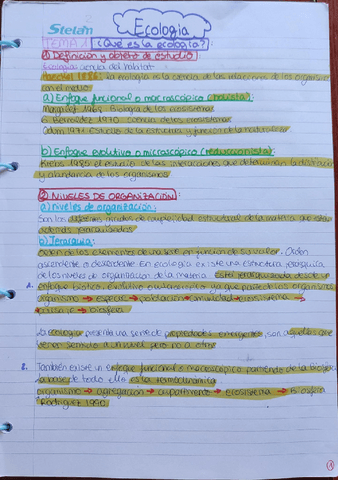 Stelan
Ecología
TEMA 1 ¿Qué es la ecología?:
1) Definición y objeto de estudio
Ecología: ciencia del hábitat
Haeckel 1886: la ecología es la ciencia de las relaciones de los organismos
con el medio
a) Enfoque funcional o macroscópico (holista):
Margalef 1968: Biología de los ecosistemas
Odum 1971: Estudio de la estructura y función de la naturaleza
b) Enfoque evolutivo o microscópico (reduccionista):
Krebs el estudio de las interacciones que determinan la distribución
y abundancia de los organismos
2) NIVELES DE ORGANIZACIÓN:
a) Niveles de organización:
Son los diferentes grados de complejidad estructural de la materia que están
además jerarquizados
b) Jerarquía:
Orden de los elementos de una serie en función de su valor. Orden
ascendente o descendente. En ecología existe una estructura jerárquica
de los niveles de organización de la materia. Está jerarquizada desde:
enfoque biótico evolutivo ya que parte de los organismos
organismo → especie → población → comunidad → ecosistema →
→ biosfera
La ecología presenta una serie de propiedades emergentes, son aquellas que
tienen sentido a un nivel pero no a otro
2. También existe un enfoque funcional o macroscópico partiendo de la biosfera
la base de todo ello es la termodinámica
organismo → agregación → compartimento → ecosistema → biosfera
Rodríguez 1990
1